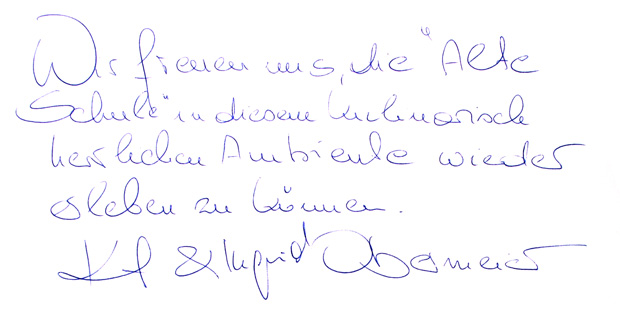 Wir freuen uns, die "Alte
Schule" in diesem kulinarisch
herrlichen Ambiente wieder
erleben zu können.
& Ingrid Obermeier